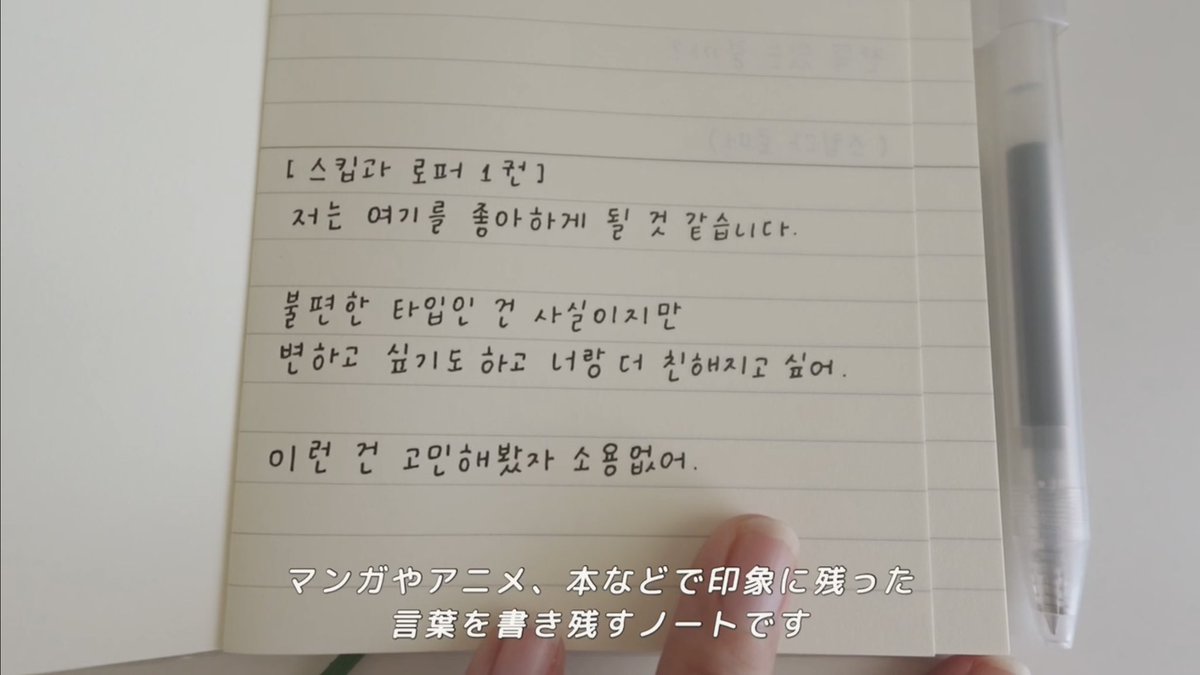 [스킵과 로퍼 1권]
저는 여기를 좋아하게 될 것 같습니다.
불편한 타입인 건 사실이지만
변하고 싶기도 하고 너랑 더 친해지고 싶어.
이런 건 고민해봤자 소용없어.
マンガやアニメ、本などで印象に残った
言葉を書き残すノートです